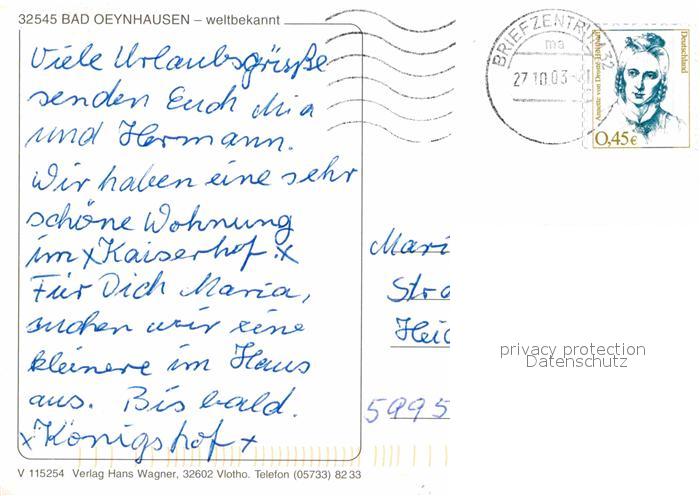 32545 BAD OEYNHAUSEN – weltbekannt
Viele Urlaubsgrüsse
senden Euch Mia
und Hermann.
Wir haben eine sehr
schöne Wohnung
im x Kaiserhof. x
Für Dich Maria,
suchen wir eine
kleinere im Haus
aus. Bis bald.
x Königshof x
V 115254 Verlag Hans Wagner, 32602 Vlotho. Telefon (05733) 82 33
BRIEFZENTRUM 32
ma
27.10.03
Annette von Droste-Hülshoff
Deutschland
0,45€
Mari
Stra
Heid
5995
privacy protection
Datenschutz